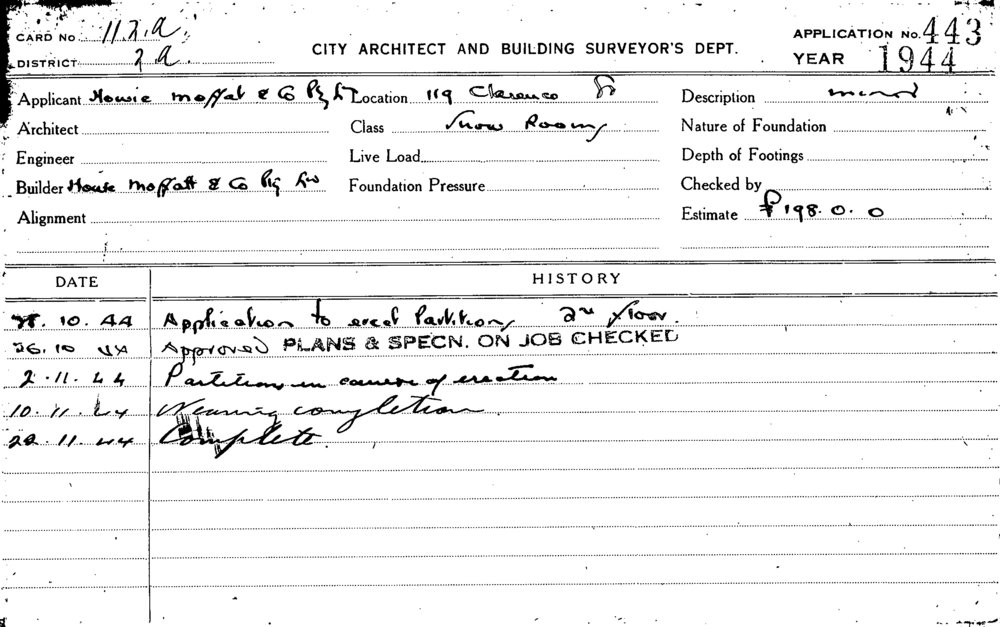 CARD No 112a
DISTRICT 2a
CITY ARCHITECT AND BUILDING SURVEYOR'S DEPT.
APPLICATION No. 443
YEAR 1944
Applicant Howie Moffat & Co Pty Ltd Location 119 Clarence St Description minor
Architect Class Show Rooms Nature of Foundation
Engineer Live Load Depth of Footings
Builder Howie Moffatt & Co Pty Ltd Foundation Pressure Checked by
Alignment Estimate £198.0.0
DATE HISTORY
10.44 Application to erect Partitions 2nd floor.
26.10 44 Approved PLANS & SPECN. ON JOB CHECKED
2.11.44 Partitions in course of erection
10.11.44 Nearing completion
22.11.44 Complete.